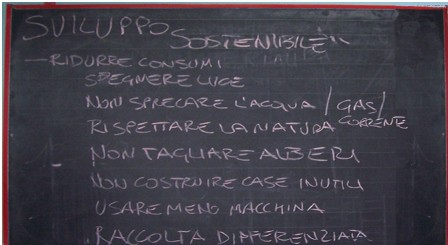 SVILUPPO
SOSTENIBILE
— RIDURRE CONSUMI
SPEGNERE LUCE
NON SPRECARE L'ACQUA / GAS /
CORRENTE
RISPETTARE LA NATURA
NON TAGLIARE ALBERI
NON COSTRUIRE CASE INUTILI
USARE MENO MACCHINA
RACCOLTA DIFFERENZIATA